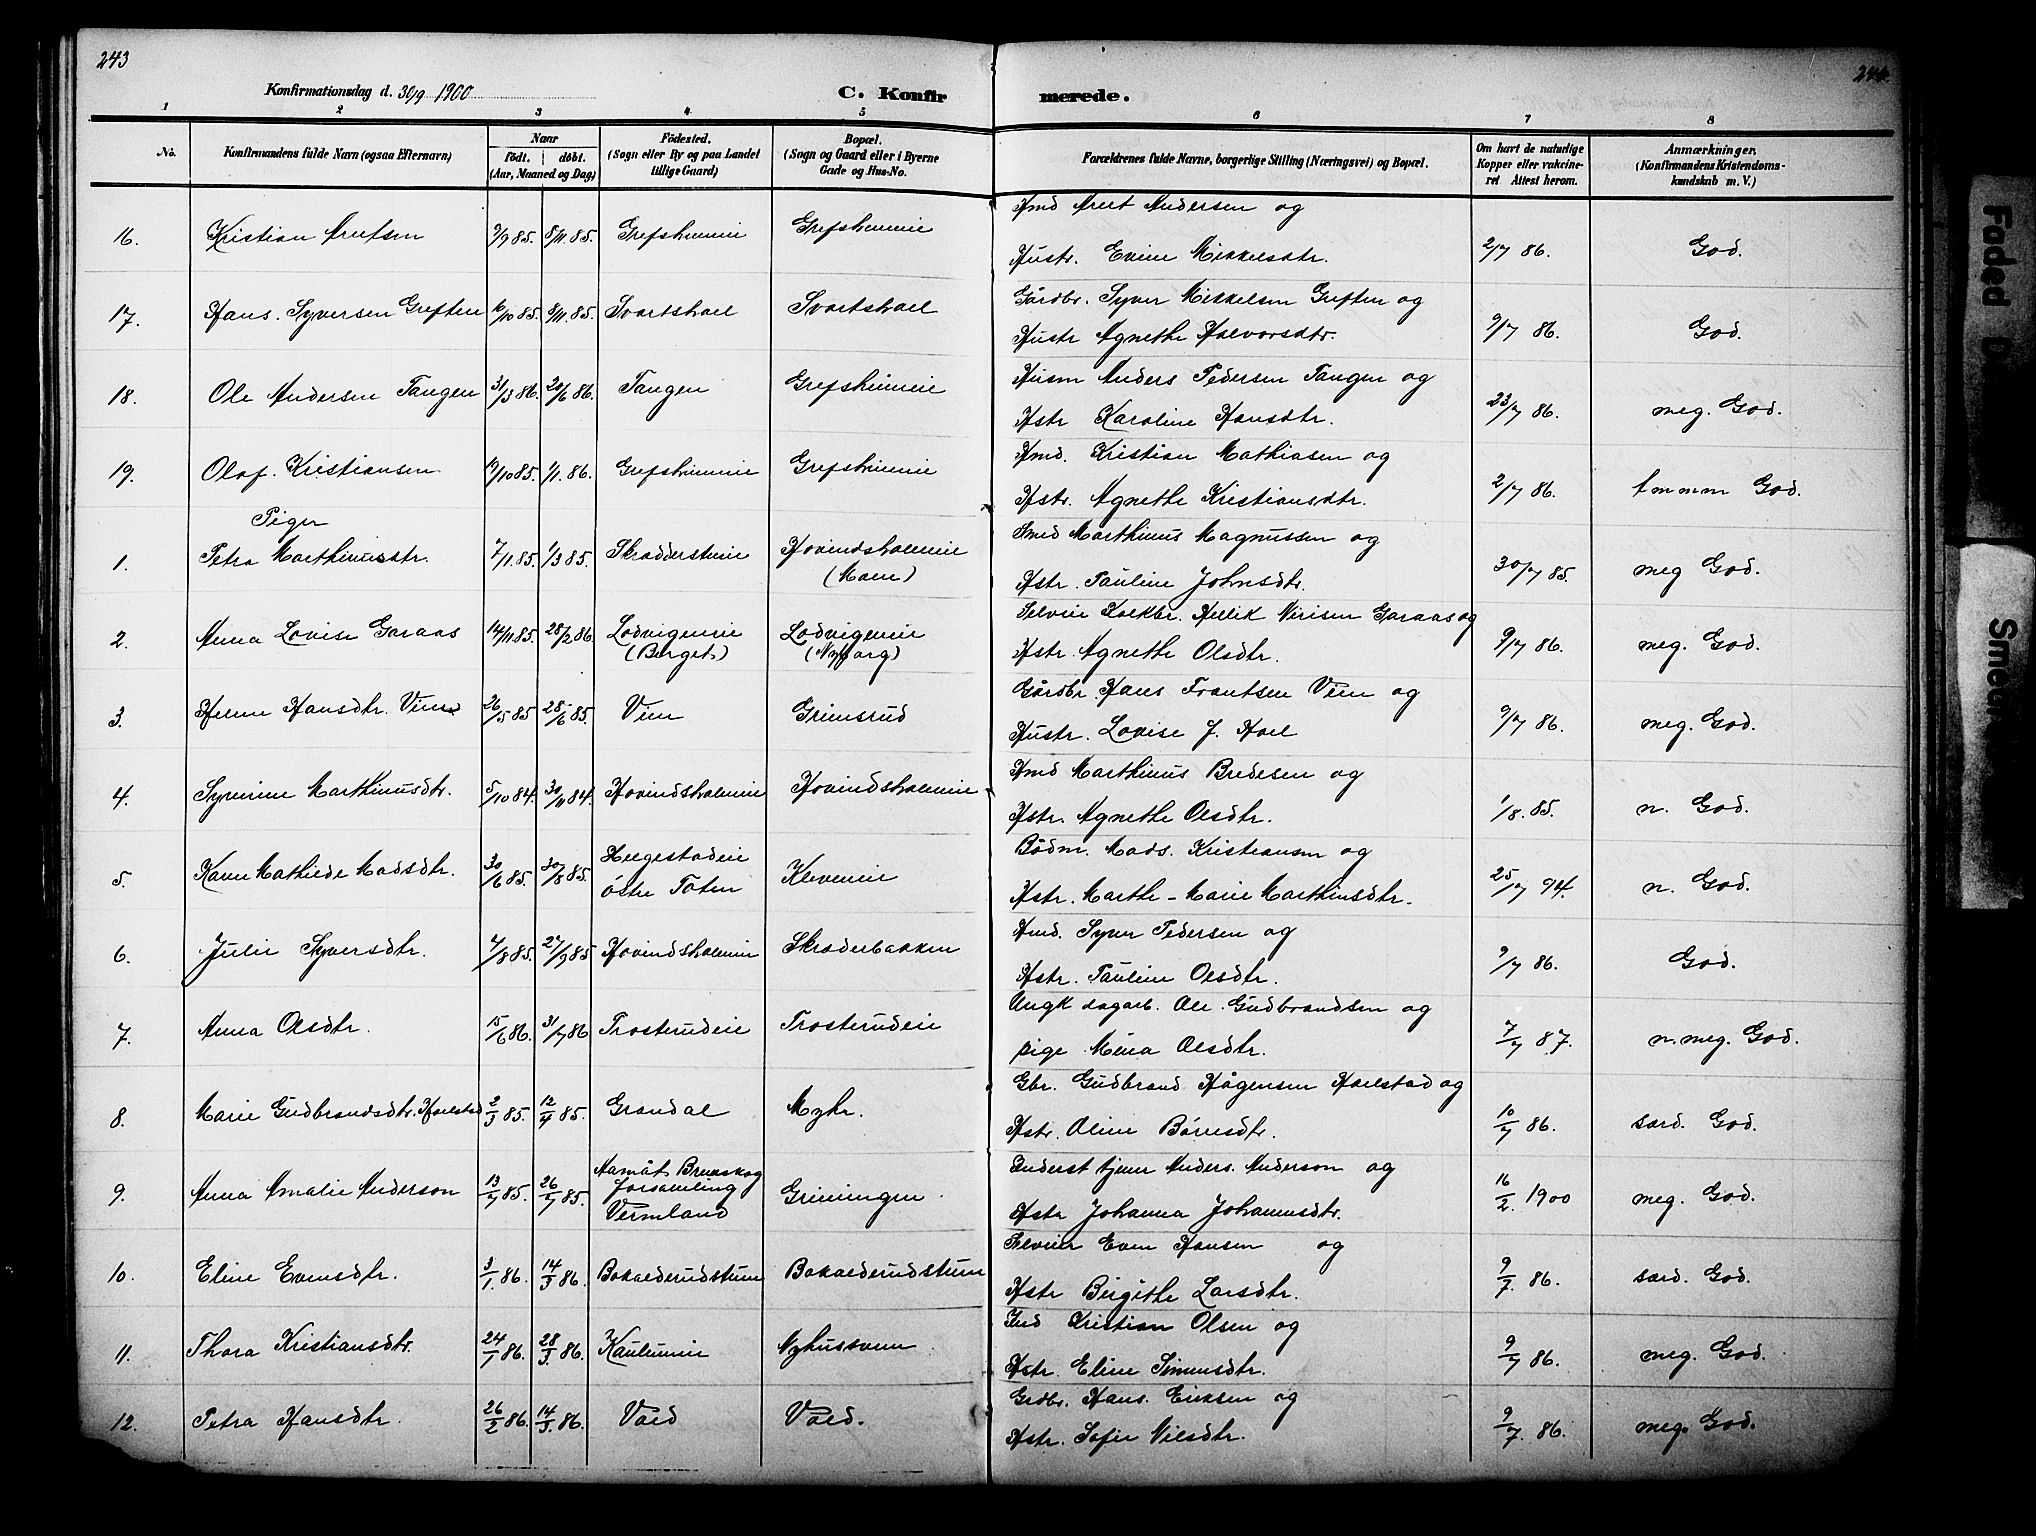 243
244.
Konfirmationsdag d. 30/9 1900
C. Konfirmerede.
1 2 3 4 5 6 7 8
No. Konfirmandens fulde Navn (ogsaa Efternavn) Naar födt. döbt. (Aar, Maaned og Dag) Födested. (Sogn eller By og paa Landet tillige Gaard) Bopæl. (Sogn og Gaard eller i Byerne Gade og Hus-No. Forældrenes fulde Navne, borgerlige Stilling (Næringsvei) og Bopæl. Om havt de naturlige Kopper eller vakcineret Attest herom. Anmærkninger. (Konfirmandens Kristendomskundskab m. V.)
16. Kristian Arntsen 9/9 85. 8/11 85. Grefsheimeie Grefsheimeie Hmd Arnt Andersen og
Hustr. Eline Mikkelsdtr. 2/7 86. God.
17. Hans. Syversen Greften 10/10 85. 8/11. 85. Svartshoel Svartshoel Gårdbr. Syver Mikkelsen Greften og
Hustr Agnethe Halvorsdtr. 9/7 86. God.
18. Ole Andersen Tangen 31/3 86. 20/6 86. Tangen Grefsheimeie Husm Anders Pedersen Tangen og
Hstr Karoline Hansdtr. 23/7 86. meg. God.
19. Olaf. Kristiansen 19/10 85. 1/1. 86. Grefsheimeie Grefsheimeie Hmd. Kristian Mathiasen og
Hstr. Agnethe Kristiansdtr. 2/7 86. God.
Piger
1. Petra Marthinusdtr. 7/1. 85. 1/3 85. Skraddersteneie Hovindsholmeie
(Moen) Smed Marthinus Magnussen og
Hstr. Pauline Johnsdtr. 30/7 85. meg God.
2. Anna Lovise Garaas 14/11 85. 28/2 86. Lodvigeneie
(Berget) Lodvigeneie
(Nyborg) Selveir Hellik Nirisen Garaas og
Hstr. Agnethe Olsdtr. 9/7 86. meg. God.
3. Helene Hansdtr. Vien 26/5 85 28/6 85. Vien Grimsrud Gårdbr. Hans Frantsen Vien og
Hustr. Lovise J. Hoel 9/7 86. meg. God.
4. Syverine Marthinusdtr. 5/10 84. 30/11 84. Hovindsholmeie Hovindsholmeie Hmd Marthinus Bredesen og
Hstr. Agnethe Olsdtr. 1/8. 85. n. God.
5. Karen Mathilde Madsdtr. 30/6 85. 30/8 85. Helgestadeie
östre Toten Kleveneie Bödm. Mads. Kristiansen og
Hstr. Marthe-Marie Marthinsdtr. 25/7 94. n. God.
6. Julie Syversdtr. 7/8 85. 27/9 85 Hovindsholmeie Skraderbakken Hmd. Syver Pedersen og
Hstr. Pauline Olsdtr. 9/7 86. God.
7. Anna Olsdtr. 15/6 86. 31/7 86 Trosterudeie Trosterudeie Ungk dagarb. Ole. Gudbrandsen og
pige Mina Olsdtr. 7/7 87. n. meg. God.
8. Marie Gudbrandsdtr. Hoelstad 2/3 85. 12/4 85. Grandal Myhr. Gbr. Gudbrand Hågensen Hoelstad og
Hstr. Oline Börresdtr. 10/7 86. særd. God.
9. Anna Amalie Anderson 13/7 85. 26/7 85. Aamåt Brunskog
forsamling
Vermland Griningen Anders. Anderson og
Hstr Johanna Johannesdtr. 16/2. 1900 meg. God.
10. Eline Evensdtr. 3/1. 86. 14/3 86. Bakalderudstuen Bakalderudstuen Selveier Even Hansen og
Hstr Birgithe Larsdtr. 9/7. 86. særd. God.
11. Thora Kristiansdtr. 24/1 86. 28/3. 86. Kaulumeie Nyhussveen Ind Kristian Olsen og
Hstr. Eline Simensdtr. 9/7 86. meg. God.
12. Petra Hansdtr. 26/2 86. 14/3. 86. Vold Vold. Grdbr. Hans. Eriksen og
Hstr. Sofie Nilsdtr. 9/7. 86. meg. God.